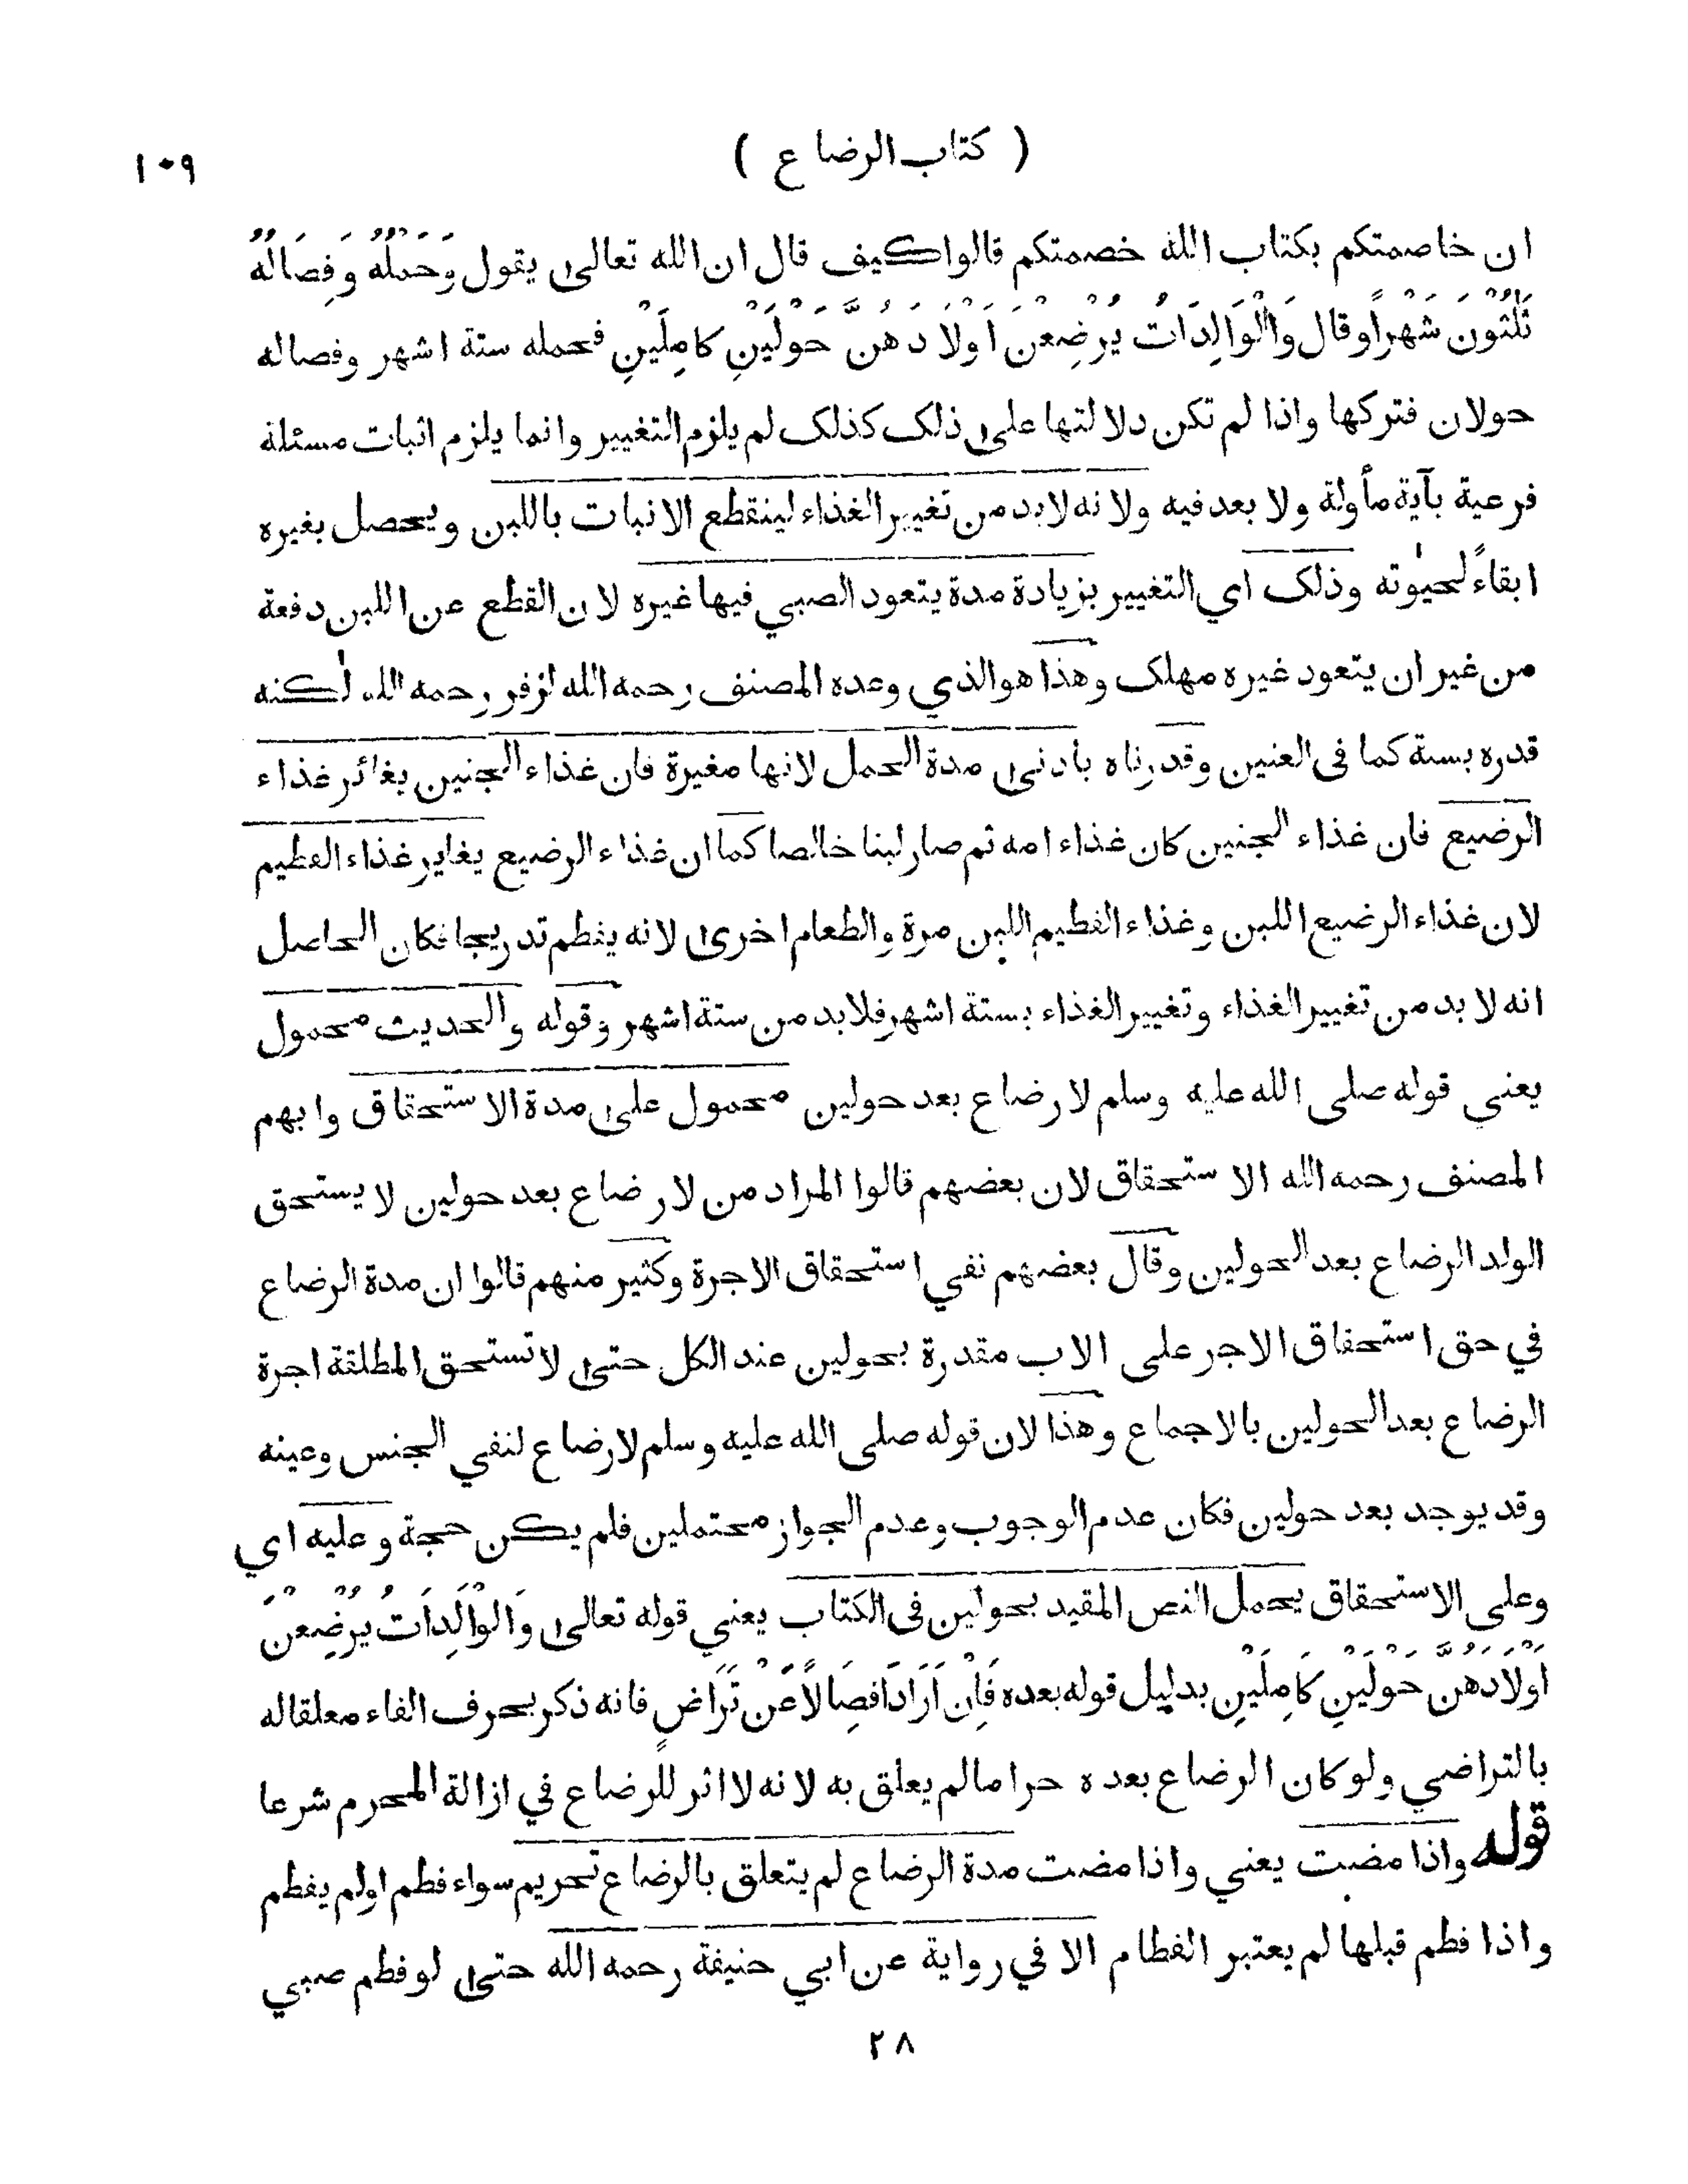 ( كتاب الرضاع )
١٠٩
ان خاصمتكم بكتاب الله خصمتكم قالوا كيف قال ان الله تعالى يقول وَحَمْلُهُ وَفِصَالُهُ
ثَلٰثُونَ شَهْرًا وقال وَالْوَالِدَاتُ يُرْضِعْنَ اَوْلَادَهُنَّ حَوْلَيْنِ كامِلَيْنِ فحمله ستة اشهر وفصاله
حولان فتركها واذا لم تكن دلالتها على ذلك كذلك لم يلزم التغيير وانما يلزم اثبات مسئلة
فرعية بآية مأولة ولا بعد فيه ولانه لابد من تغيير الغذاء لينقطع الانبات باللبن ويحصل بغيره
ابقاءً لحيٰوته وذلك اي التغيير بزيادة مدة يتعود الصبي فيها غيره لان القطع عن اللبن دفعة
من غير ان يتعود غيره مهلك وهذا هو الذي وعده المصنف رحمه الله لزفر رحمه الله لٰكنه
قدره بسنة كما فى العنين وقدرناه بأدنى مدة الحمل لانها مغيرة فان غذاء الجنين بغائر غذاء
الرضيع فان غذاء الجنين كان غذاء امه ثم صار لبنا خالصا كما ان غذاء الرضيع يغاير غذاء الفطيم
لان غذاء الرضيع اللبن وغذاء الفطيم اللبن مرة والطعام اخرى لانه يفطم تدريجا فكان الحاصل
انه لا بد من تغيير الغذاء وتغيير الغذاء بستة اشهر فلابد من ستة اشهر وقوله والحديث محمول
يعني قوله صلى الله عليه وسلم لا رضاع بعد حولين محمول على مدة الاستحقاق وابهم
المصنف رحمه الله الاستحقاق لان بعضهم قالوا المراد من لا رضاع بعد حولين لا يستحق
الولد الرضاع بعد الحولين وقال بعضهم نفي استحقاق الاجرة وكثير منهم قالوا ان مدة الرضاع
في حق استحقاق الاجر على الاب مقدرة بحولين عند الكل حتى لا تستحق المطلقة اجرة
الرضاع بعد الحولين بالاجماع وهذا لان قوله صلى الله عليه وسلم لا رضاع لنفي الجنس وعينه
وقد يوجد بعد حولين فكان عدم الوجوب وعدم الجواز محتملين فلم يكن حجة وعليه اي
وعلى الاستحقاق يحمل النص المقيد بحولين فى الكتاب يعني قوله تعالى وَالْوَالِدَاتُ يُرْضِعْنَ
اَوْلَادَهُنَّ حَوْلَيْنِ كَامِلَيْنِ بدليل قوله بعده فَاِنْ اَرَادَا فِصَالًا عَنْ تَرَاضٍ فانه ذكر بحرف الفاء معلقا له
بالتراضي ولو كان الرضاع بعده حراما لم يعلق به لانه لا اثر للرضاع في ازالة المحرم شرعا
قوله واذا مضت يعني واذا مضت مدة الرضاع لم يتعلق بالرضاع تحريم سواء فطم او لم يفطم
واذا فطم قبلها لم يعتبر الفطام الا في رواية عن ابي حنيفة رحمه الله حتى لو فطم صبي
٢٨